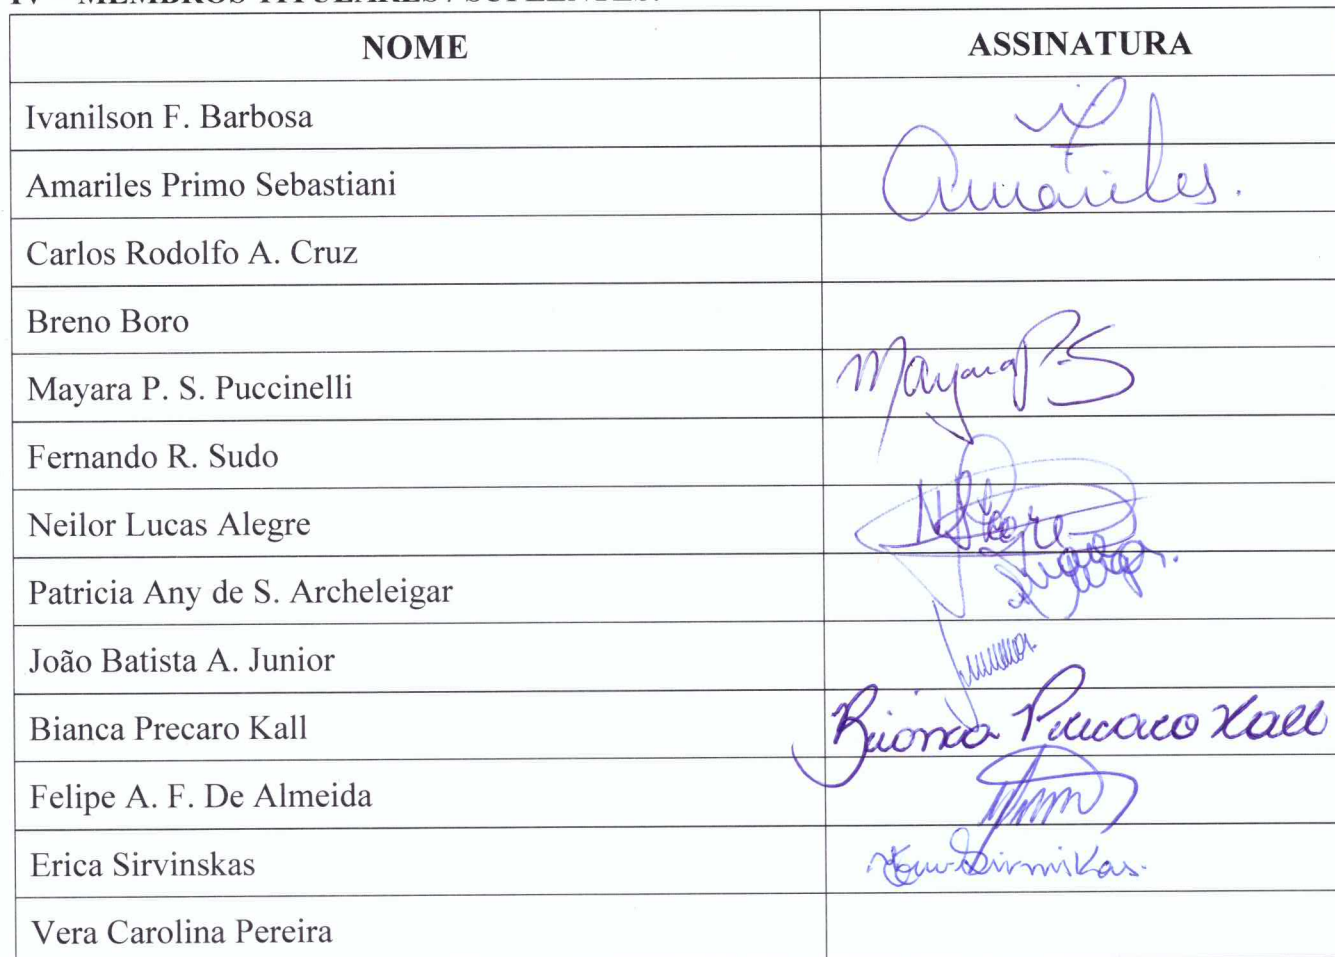 IV – MEMBROS TITULARES / SUPLENTES:
NOME ASSINATURA
Ivanilson F. Barbosa
Amariles Primo Sebastiani Amariles.
Carlos Rodolfo A. Cruz
Breno Boro
Mayara P. S. Puccinelli Mayara P. S
Fernando R. Sudo
Neilor Lucas Alegre
Patricia Any de S. Archeleigar
João Batista A. Junior
Bianca Precaro Kall Bianca Precaro Kall
Felipe A. F. De Almeida
Erica Sirvinskas
Vera Carolina Pereira